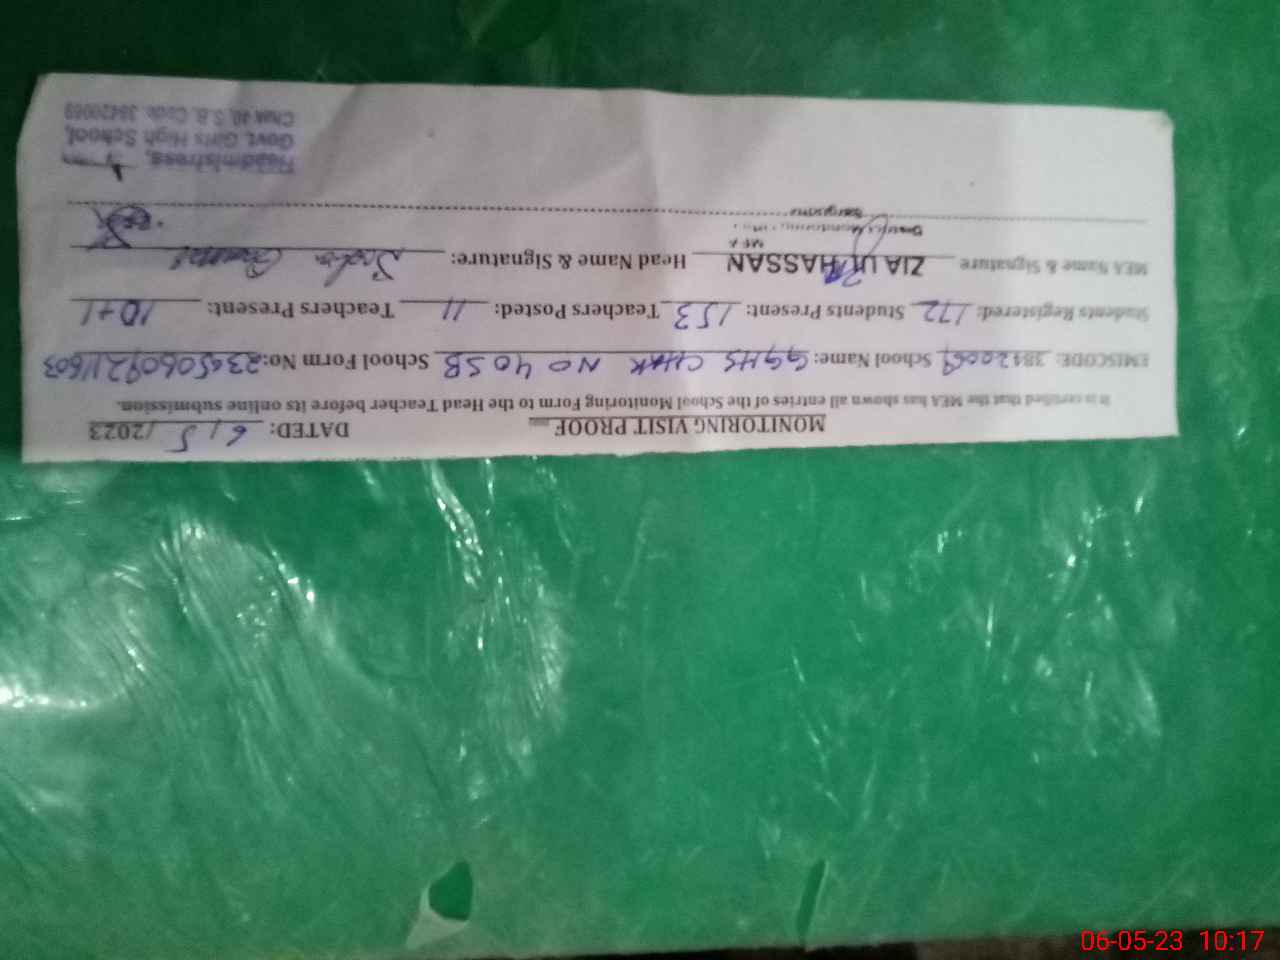 MONITORING VISIT PROOF DATED: 6/5/2023
It is certified that the MEA has shown all entries of the School Monitoring Form to the Head Teacher before its online submission.
EMISCODE: 38420069 School Name: GGHS CHAK NO 40 SB School Form No: 23450609211603
Students Registered: 172 Students Present: 153 Teachers Posted: 11 Teachers Present: 10+1
MEA Name & Signature ZIA UL HASSAN Head Name & Signature:
MEA
Sargodha
Headmistress,
Govt. Girls High School,
Chak 40, S.B. Code 38420069
06-05-23 10:17